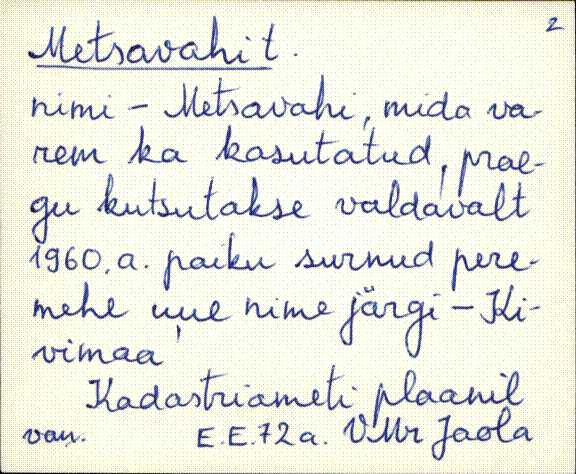 2
Metsavahi t.
nimi – Metsavahi, mida va-
rem ka kasutatud, prae-
gu kutsutakse valdavalt
1960. a. paiku surnud pere-
mehe uue nime järgi – Ki-
vimaa
Kadastriameti plaanil
van. E.E. 72 a. VMr Jaola